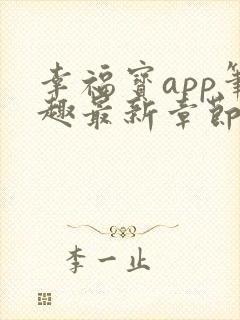 幸福宝app笔
趣最新章节
李一止